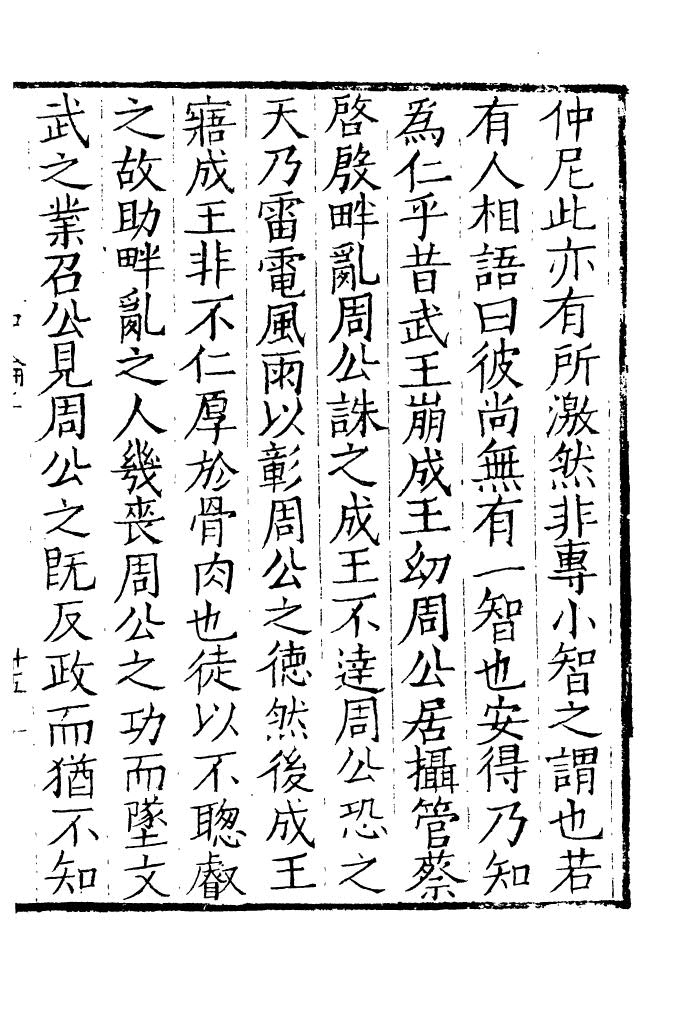 仲尼此亦有所激然非專小智之謂也若
有人相語曰彼尚無有一智也安得乃知
爲仁乎昔武王崩成王幼周公居攝管蔡
啓殷畔亂周公誅之成王不達周公恐之
天乃雷電風雨以彰周公之德然後成王
寤成王非不仁厚於骨肉也徒以不聰叡
之故助畔亂之人幾喪周公之功而墜文
武之業召公見周公之既反政而猶不知
十五